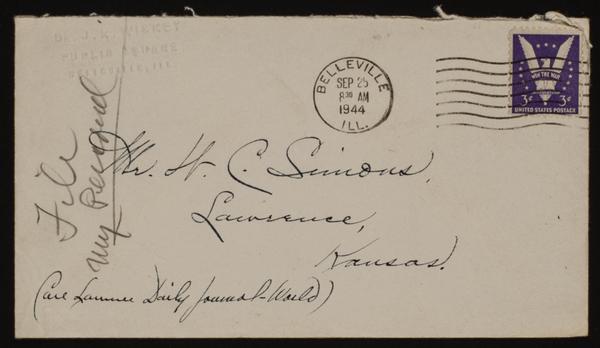 PUBLIC SQUARE
BELLEVILLE, ILL.
BELLEVILLE
SEP 25
8:30 AM
1944
ILL.
WIN THE WAR
3¢ 3¢
UNITED STATES POSTAGE
File
My Personal
Mr. W. C. Simons,
Lawrence,
Kansas.
(Care Lawrence Daily Journal-World)